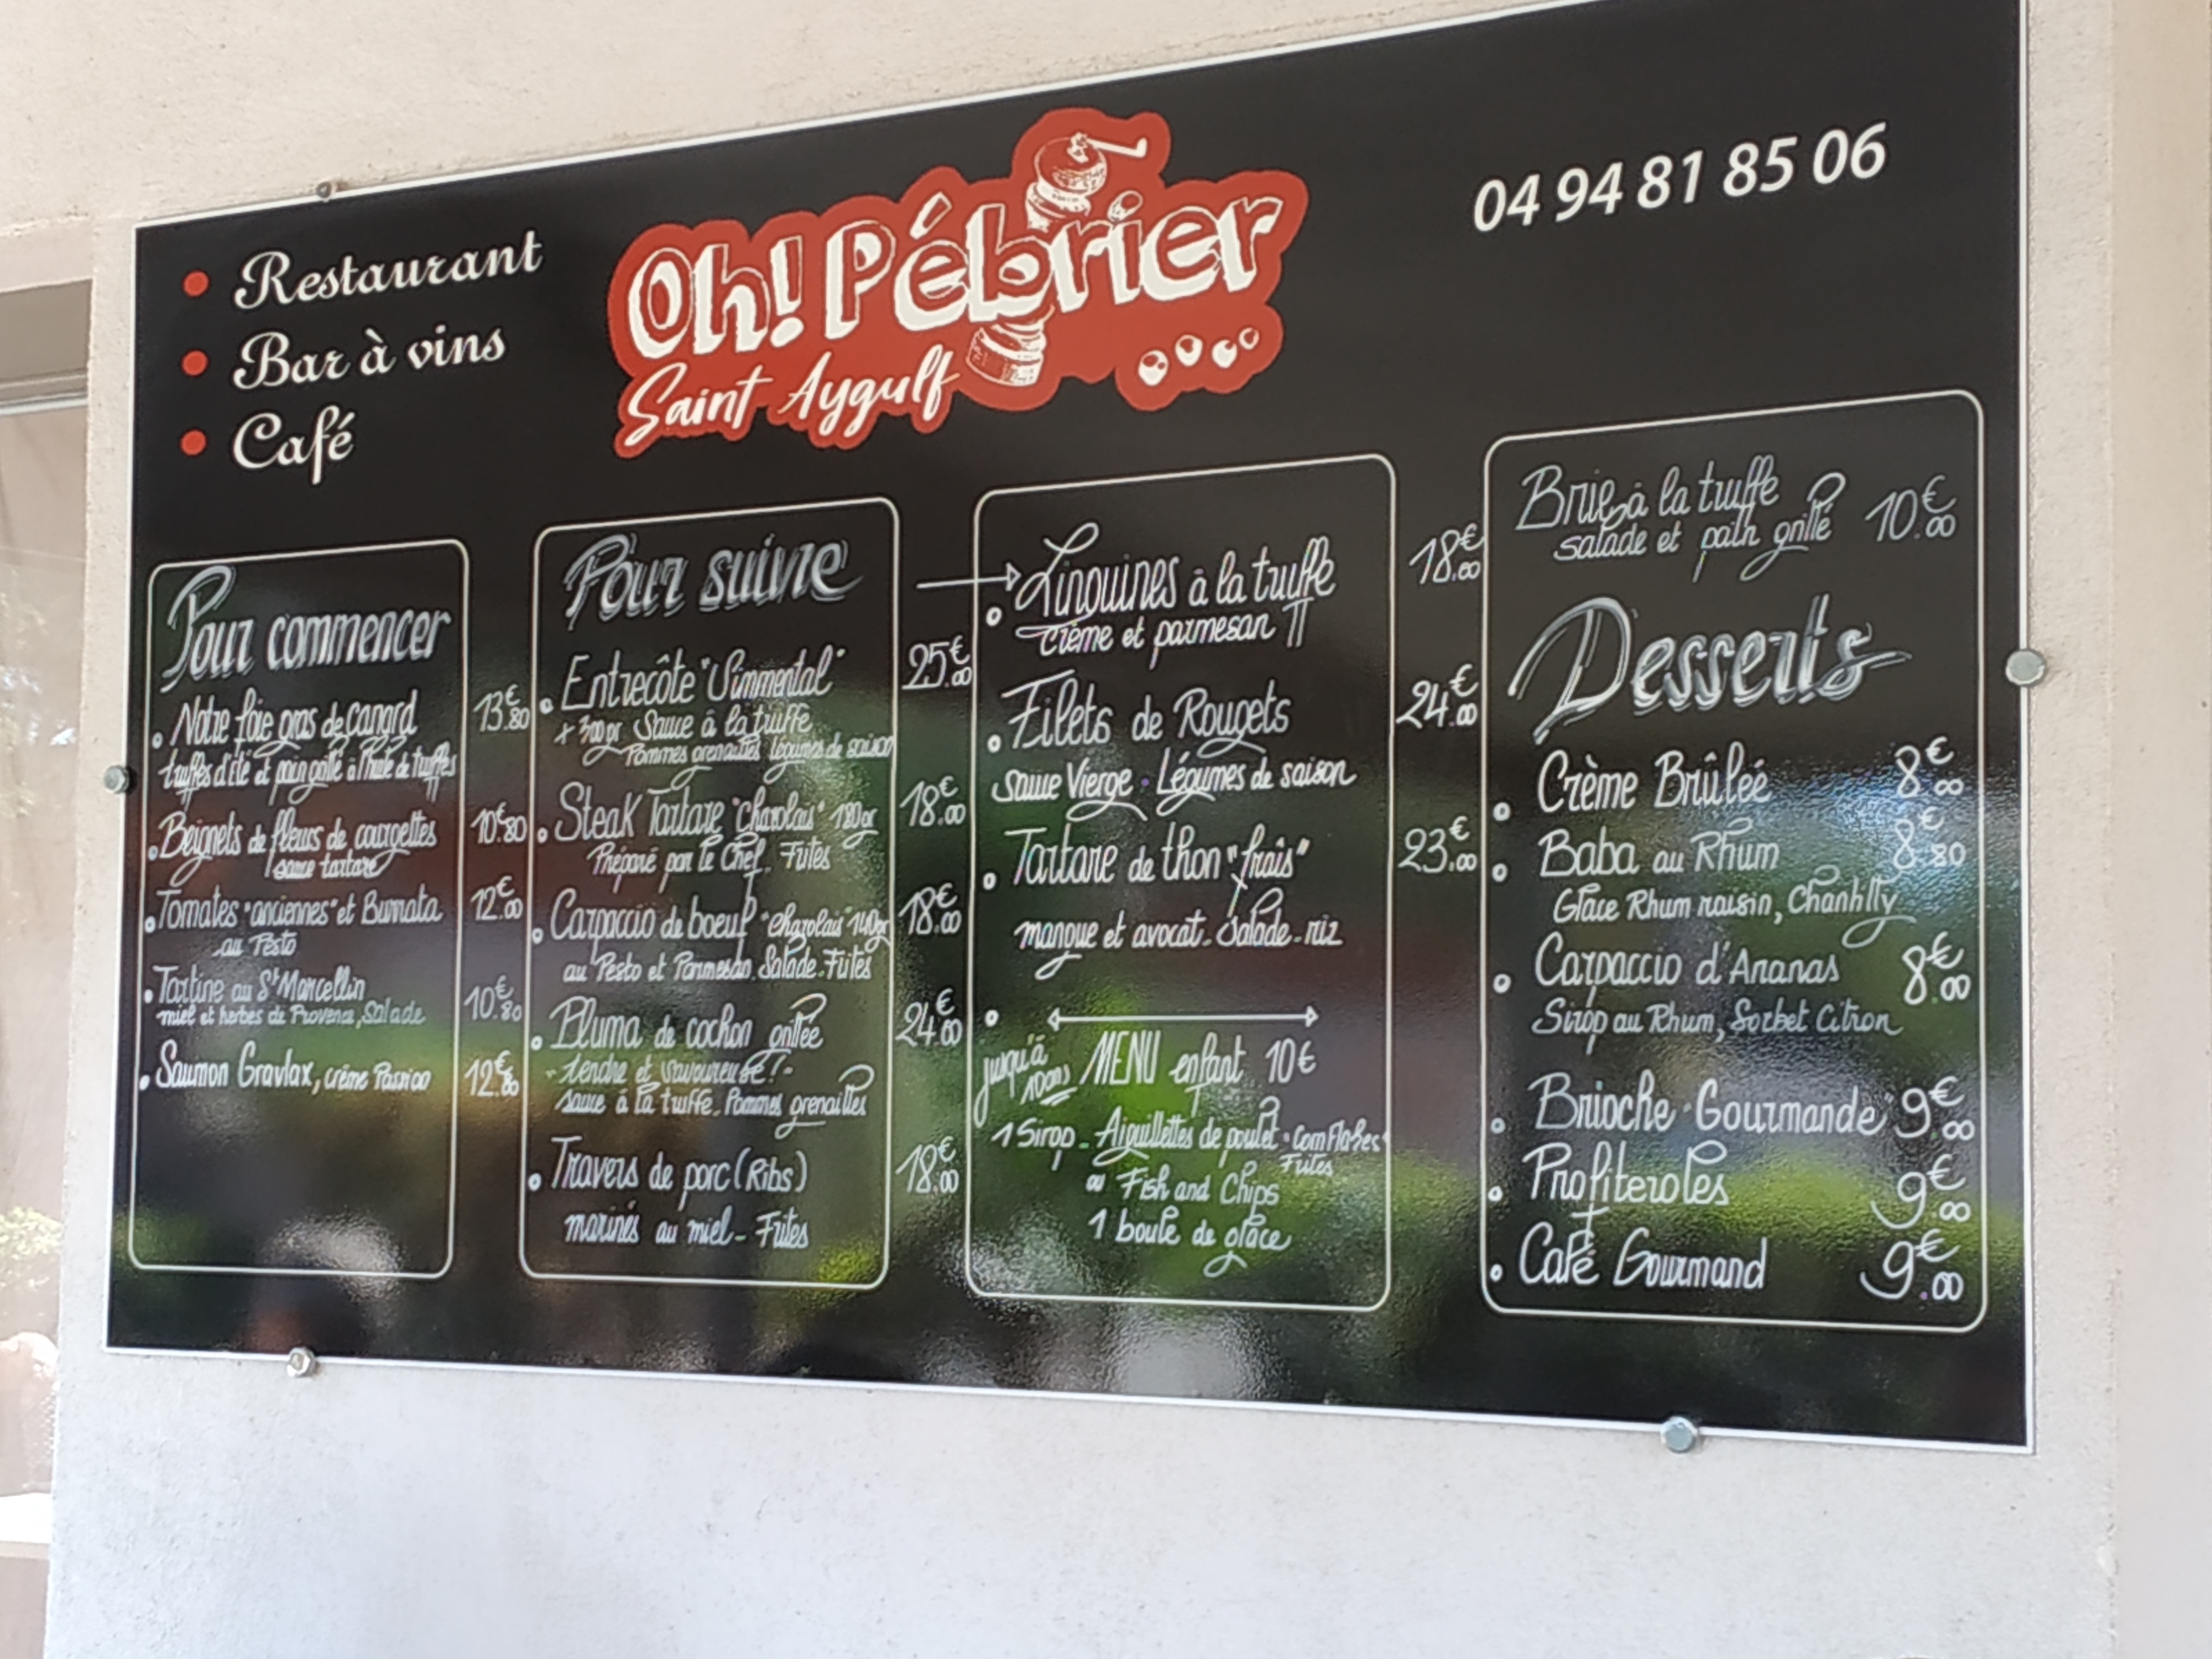 Restaurant
Bar à vins
Café
Oh! Pébrier
Saint Aygulf
04 94 81 85 06
Pour commencer
Notre foie gras de canard 13€80
truffes d'été et pain grillé à l'huile de truffes
Beignets de fleurs de courgettes 10€80
sauce tartare
Tomates "anciennes" et Burrata 12€00
au Pesto
Tartine au St Marcellin
miel et herbes de Provence, Salade 10€80
Saumon Gravlax, crème Passion 12€80
Pour suivre
Entrecôte "Simmental" 25€00
± 300gr Sauce à la truffe
Pommes grenailles légumes de saison
Steak Tartare "charolais" 180gr 18€00
Préparé par le Chef. Frites
Carpaccio de boeuf "charolais" 140gr 18€00
au Pesto et Parmesan. Salade. Frites
Pluma de cochon grillée 24€00
- tendre et savoureuse! -
sauce à la truffe. Pommes grenailles
Travers de porc (Ribs) 18€00
marinés au miel - Frites
Linguines à la truffe 18€00
crème et parmesan
Filets de Rougets 24€00
sauce Vierge . Légumes de saison
Tartare de thon "frais" 23€00
mangue et avocat - Salade - riz
jusqu'à 10ans MENU enfant 10€
1 Sirop - Aiguillettes de poulet "Corn Flakes"
Frites
ou Fish and Chips
1 boule de glace
Brie à la truffe 10€00
salade et pain grillé
Desserts
Crème Brûleé 8€00
Baba au Rhum 8€80
Glace Rhum raisin, Chantilly
Carpaccio d'Ananas 8€00
Sirop au Rhum, Sorbet Citron
Brioche "Gourmande" 9€00
Profiteroles 9€00
Café Gourmand 9€00